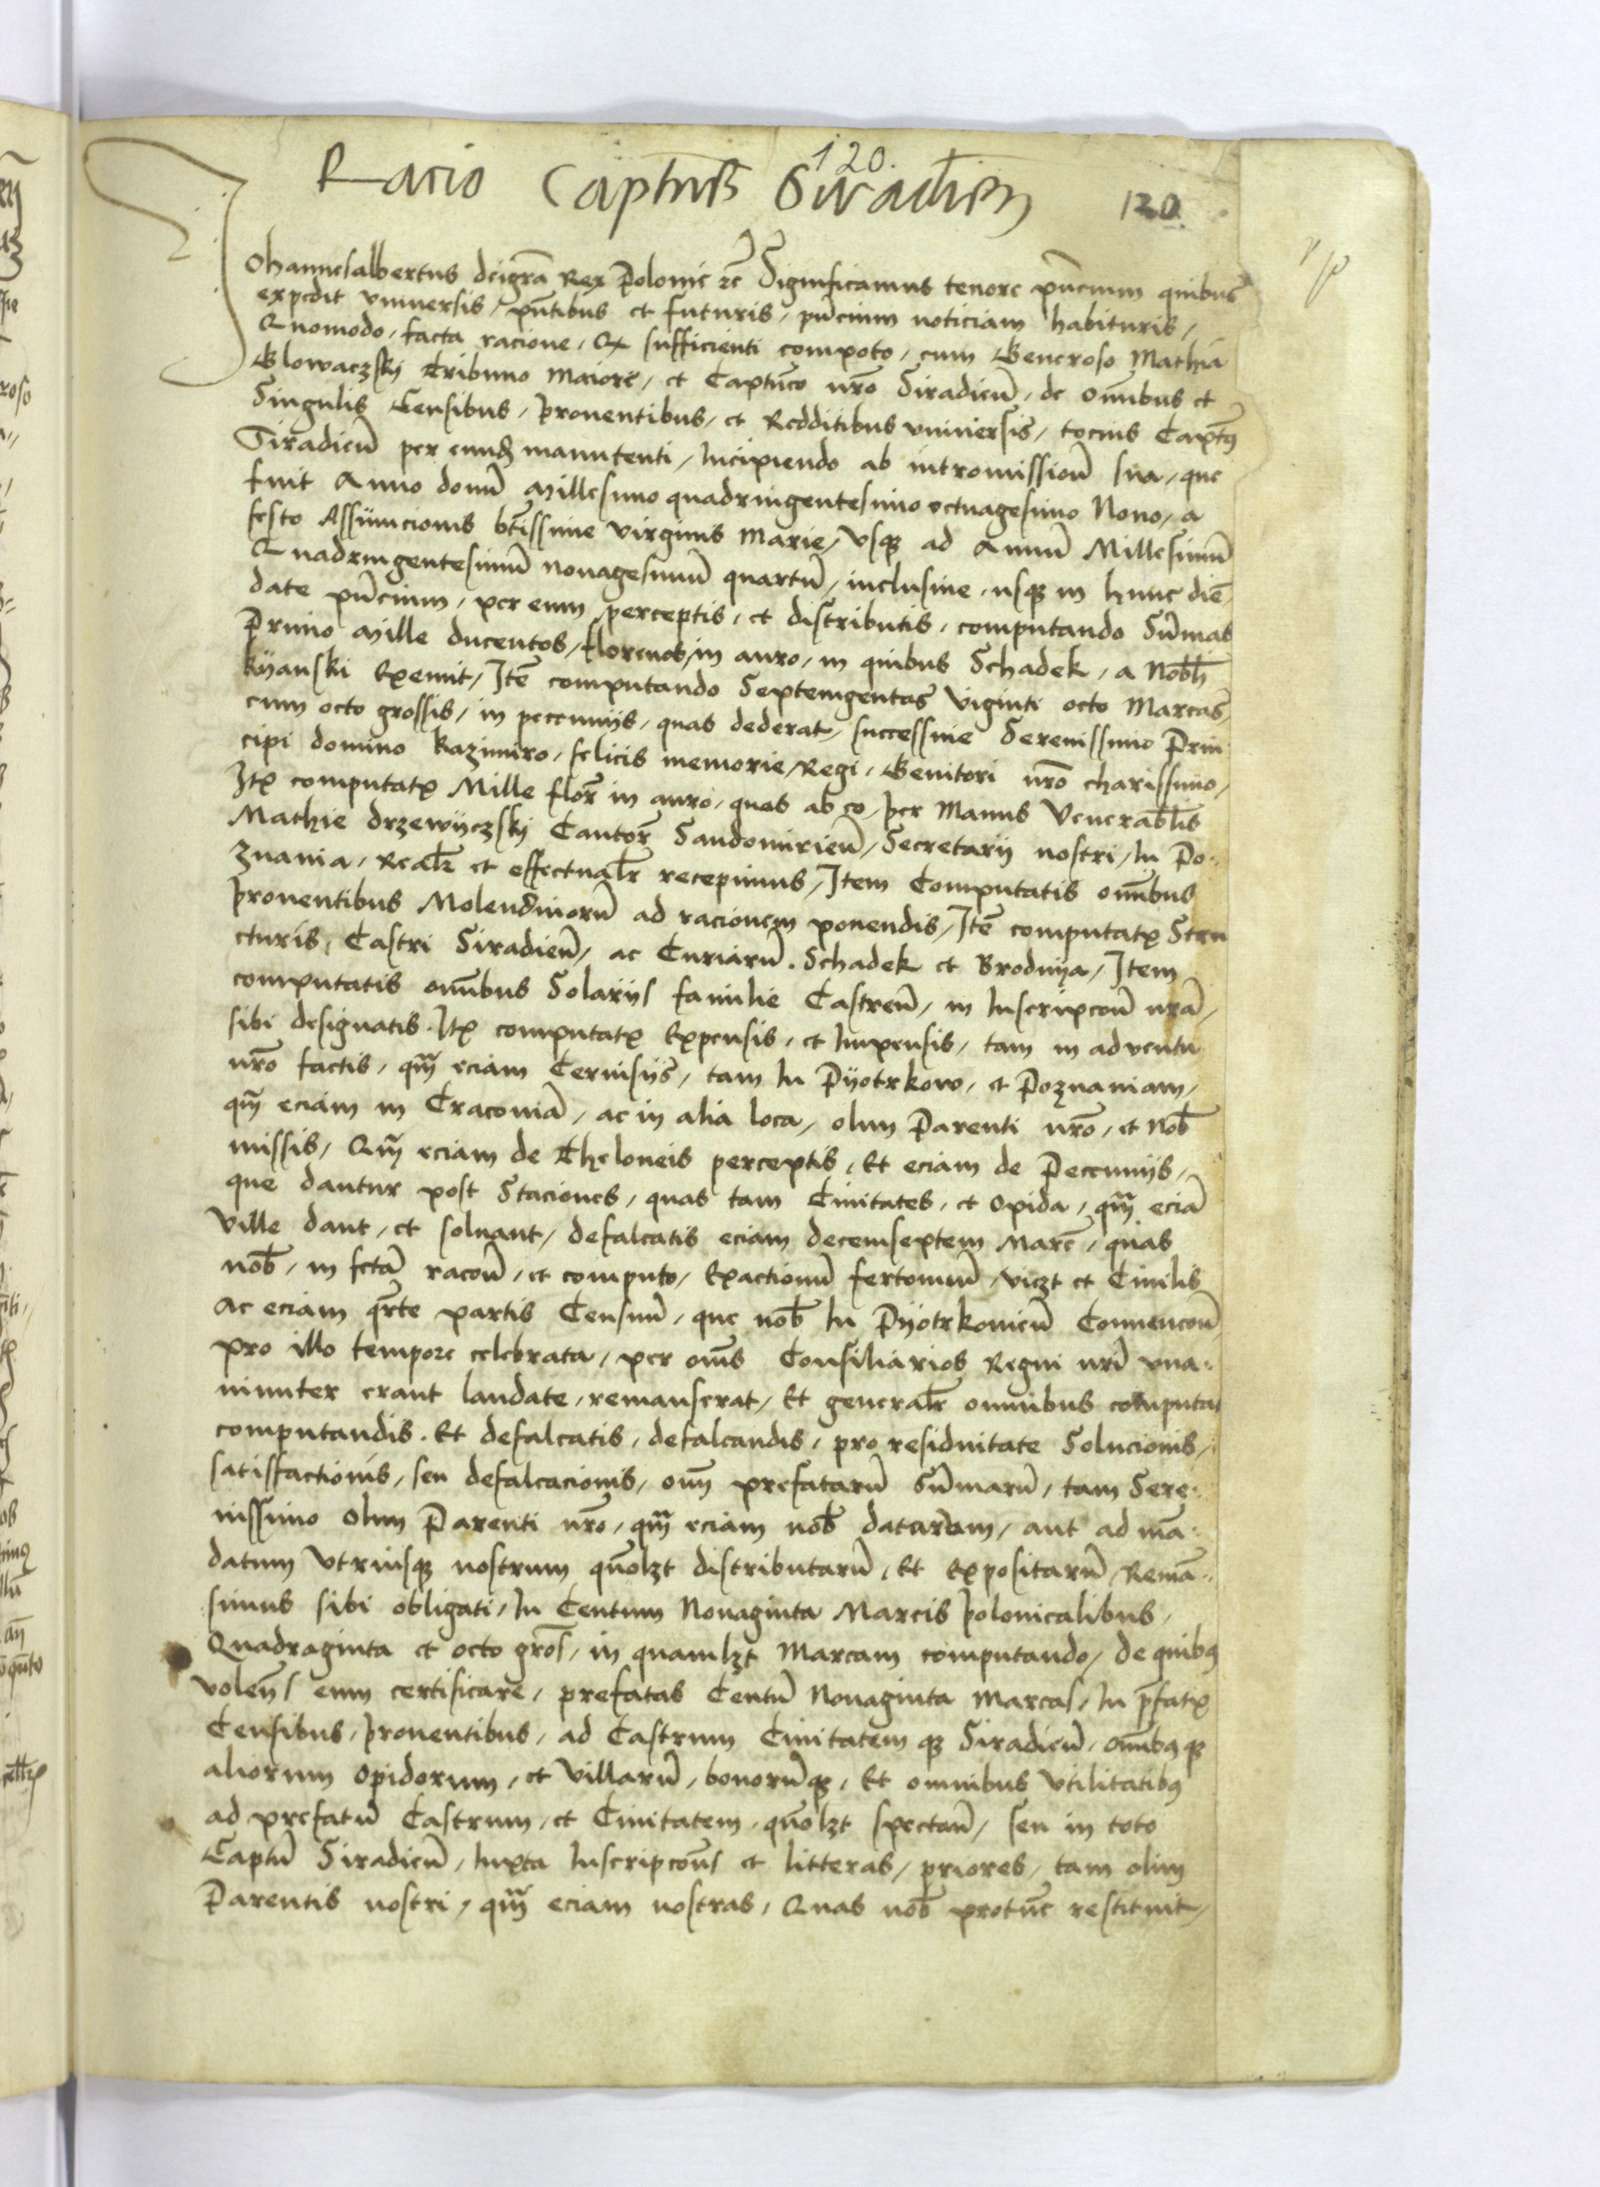 120.
Racio Captus Siradien 120
Johannesalbertus deigrã Rex Polonie zc̃ Significamus tenore pñcium quibus
expedit vniuersis, pñtibus et futuris, pñcium noticiam habituris,
Quomodo, facta racione, Et sufficienti compoto, cum Generoso Mathia
Glowaczskÿ Tribuno Maiore, et Captũco nr̃o Siradien̄, de om̃ibus et
Singulis Censibus, prouentibus, et Redditibus vniuersis, tocius Capt̃9
Siradien̄ per eund̃ manutenti, Incipiendo ab intromission̄ sua, que
fuit Anno domĩ Millesimo quadringentesimo octuagesimo Nono, a
festo Assumcionis bt̃issime virginis Marie, Vsq3 ad Annũ Millesimũ
Quadringentesimũ nonagesimũ quartũ, inclusiue, usq3 in hunc diẽ,
date pñcium, per eum perceptis, et distributis, computando Sum̃as
Primo Mille ducentos, florenos, in auro, in quibus Schadek, a Nobli
kÿanski Exemit, Itẽ computando Septemgentas Viginti octo Marcas,
cum octo grossis, in pecunijs, quas dederat, successiue Serenissimo Prin
cipi domino Kazimiro, felicis memorie, Regi, Genitori nr̃o charissimo,
Itẽ computatꝭ Mille flor̃ in auro, quos ab eo, per Manus Venerablis
Mathie drzewÿczskÿ Cantor̃ Sandomirien̄, Secretarij nostri, In Po..
znania, Realr̃ et effectualr̃ recepimus, Item Computatis om̃ibus
prouentibus Molendinorũ ad racionem ponendis, Itẽ computatꝭ Stru
cturis, Castri Siradien̄, ac Curiarũ. Schadek et Brodnÿa, Item
computatis om̃ibus Solarijs familie Castren̄, in Inscripcon̄ nr̃a,
sibi designatis. Itẽ computatꝭ Expensis, et Impensis, tam in aduentu
nr̃o factis, qm̃ eciam Ceruisijs, tam In Pÿotrkow, et Poznaniam,
qm̃ eciam in Cracouiã, ac in alia loca, olim Parenti nr̃o, et Nob̃
missis, Qm̃ eciam de Theloneis perceptis, Et eciam de Pecunijs,
que dantur post Staciones, quas tam Ciuitates, et Opida, qm̃ eciã
Ville dant, et soluant, defalcatis eciam decemseptem Marc̃, quas
nob̃, in fctã racon̄, et computo, Exactionũ fertonum, viczt et Ciuilis
Ac eciam qr̃te partis Censuũ, que nob̃ In Pÿotrkouien̄ Conuencon̄,
pro illo tempore celebrata, per om̃s Consiliarios Regni nr̃i vna..
nimiter erant laudate, remanserat, Et generalr̃ omnibus computat
computandis. Et defalcatis, defalcandis, pro residuitate Solucionis,
satisfactionis, seu defalcacionis, om̃ prefatarũ Sum̃arũ, tam Sere..
nissimo Olim Parenti nr̃o, qm̃ eciam nob̃ datarum, aut ad mã..
datum Vtriusq3 nostrum quõlzt distributarũ, Et Expositarũ, Remã..
simus sibi obligati, In Centum Nonaginta Marcis Polonicalibus,
Quadraginta et octo gros̃, in quamlzt Marcam computando, de quib9
volen̄s eum certificare, prefatas Centũ Nonaginta Marcas, In pr̃fatꝭ
Censibus, prouentibus, ad Castrum Ciuitatem q3 Siradien̄, om̃ib9 q3
aliorum Opidorum, et Villarũ, bonorũ q3, Et omnibus Vtilitatib9
ad prefatũ Castrum, et Ciuitatem, quõlzt spectan̄, seu in toto
Captũ Siradien̄, Iuxta Inscripcon̄s et litteras, priores, tam olim
Parentis nostri, qm̃ eciam nostras, Quas nob̃ protũc restituit,